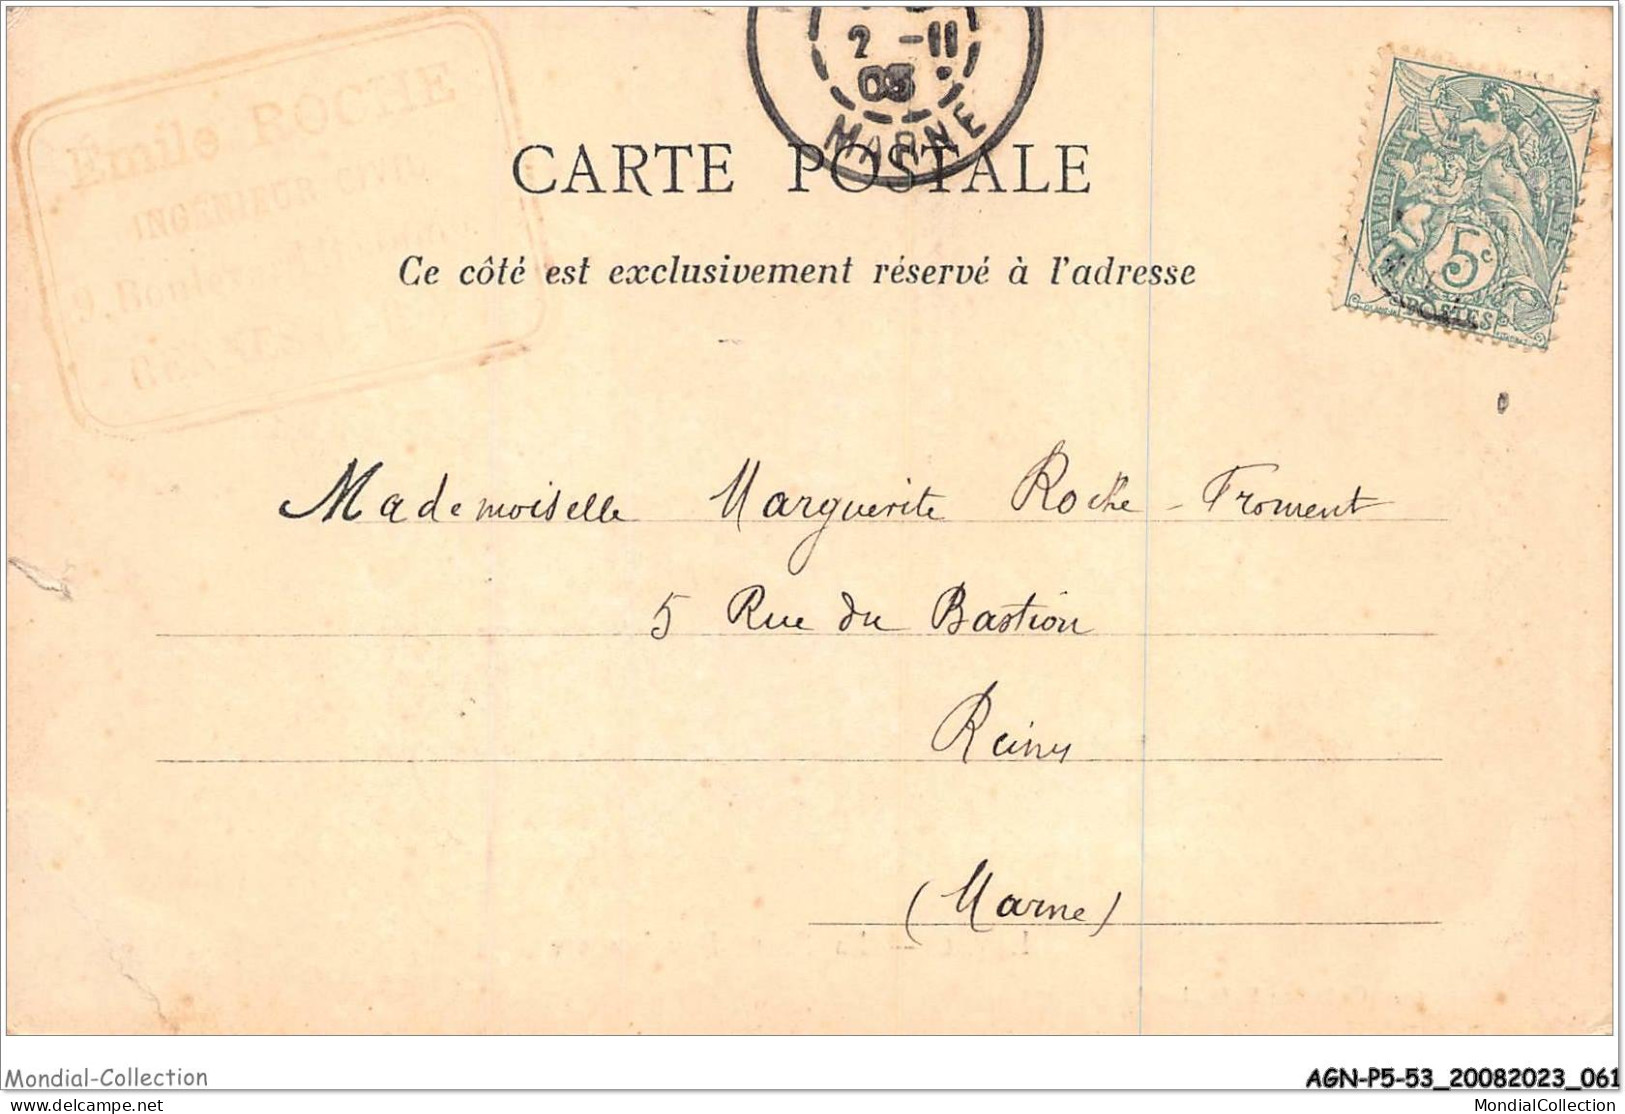 2 -11
03
MARNE
Émile ROCHE
INGÉNIEUR CIVIL
9, Boulevard
RENNES
CARTE POSTALE
Ce côté est exclusivement réservé à l'adresse
RÉPUBLIQUE FRANÇAISE
5c
POSTES
Mademoiselle Marguerite Roche - Froment
5 Rue du Bastion
Reims
(Marne)
Mondial-Collection
AGN-P5-53_20082023_061
delcampe.net
MondialCollection